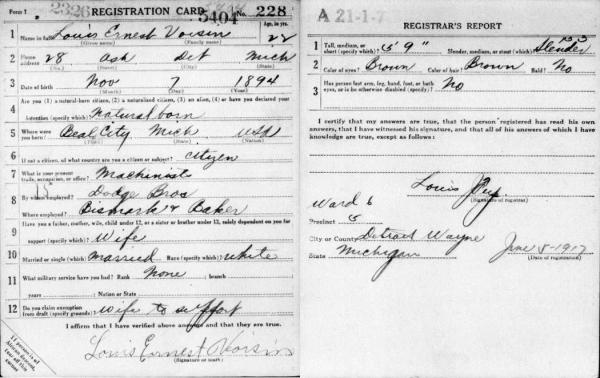 Form 1 2326 REGISTRATION CARD 5404 No. 228
1 Name in full Louis Ernest Voisin Age, in yrs. 22
(Given name) (Family name)
2 Home address 28 Ash Det Mich
(No.) (Street) (City) (State)
3 Date of birth Nov 7 1894
(Month) (Day) (Year)
4 Are you (1) a natural-born citizen, (2) a naturalized citizen, (3) an alien, (4) or have you declared your
intention (specify which)? Natural born
5 Where were you born? Beal City Mich USA
(Town) (State) (Nation)
6 If not a citizen, of what country are you a citizen or subject? citizen
7 What is your present trade, occupation, or office? Machinist
8 By whom employed? Dodge Bros
Where employed? Bismark & Baker
9 Have you a father, mother, wife, child under 12, or a sister or brother under 12, solely dependent on you for
support (specify which)? Wife
10 Married or single (which)? married Race (specify which)? white
11 What military service have you had? Rank None ; branch
years ; Nation or State
12 Do you claim exemption from draft (specify grounds)? Wife to support
I affirm that I have verified above answers and that they are true.
Louis Ernest Voisin
(Signature or mark)
If person is of African descent, tear off this corner
A 21-1-7
REGISTRAR'S REPORT
1 Tall, medium, or short (specify which)? 5' 9" Slender, medium, or stout (which)? Slender 135
2 Color of eyes? Brown Color of hair? Brown Bald? No
3 Has person lost arm, leg, hand, foot, or both eyes, or is he otherwise disabled (specify)? No
I certify that my answers are true, that the person registered has read his own
answers, that I have witnessed his signature, and that all of his answers of which I have
knowledge are true, except as follows:
Louis
(Signature of registrar)
Ward 6
Precinct 5
City or County Detroit Wayne
State Michigan June 5-1917
(Date of registration)